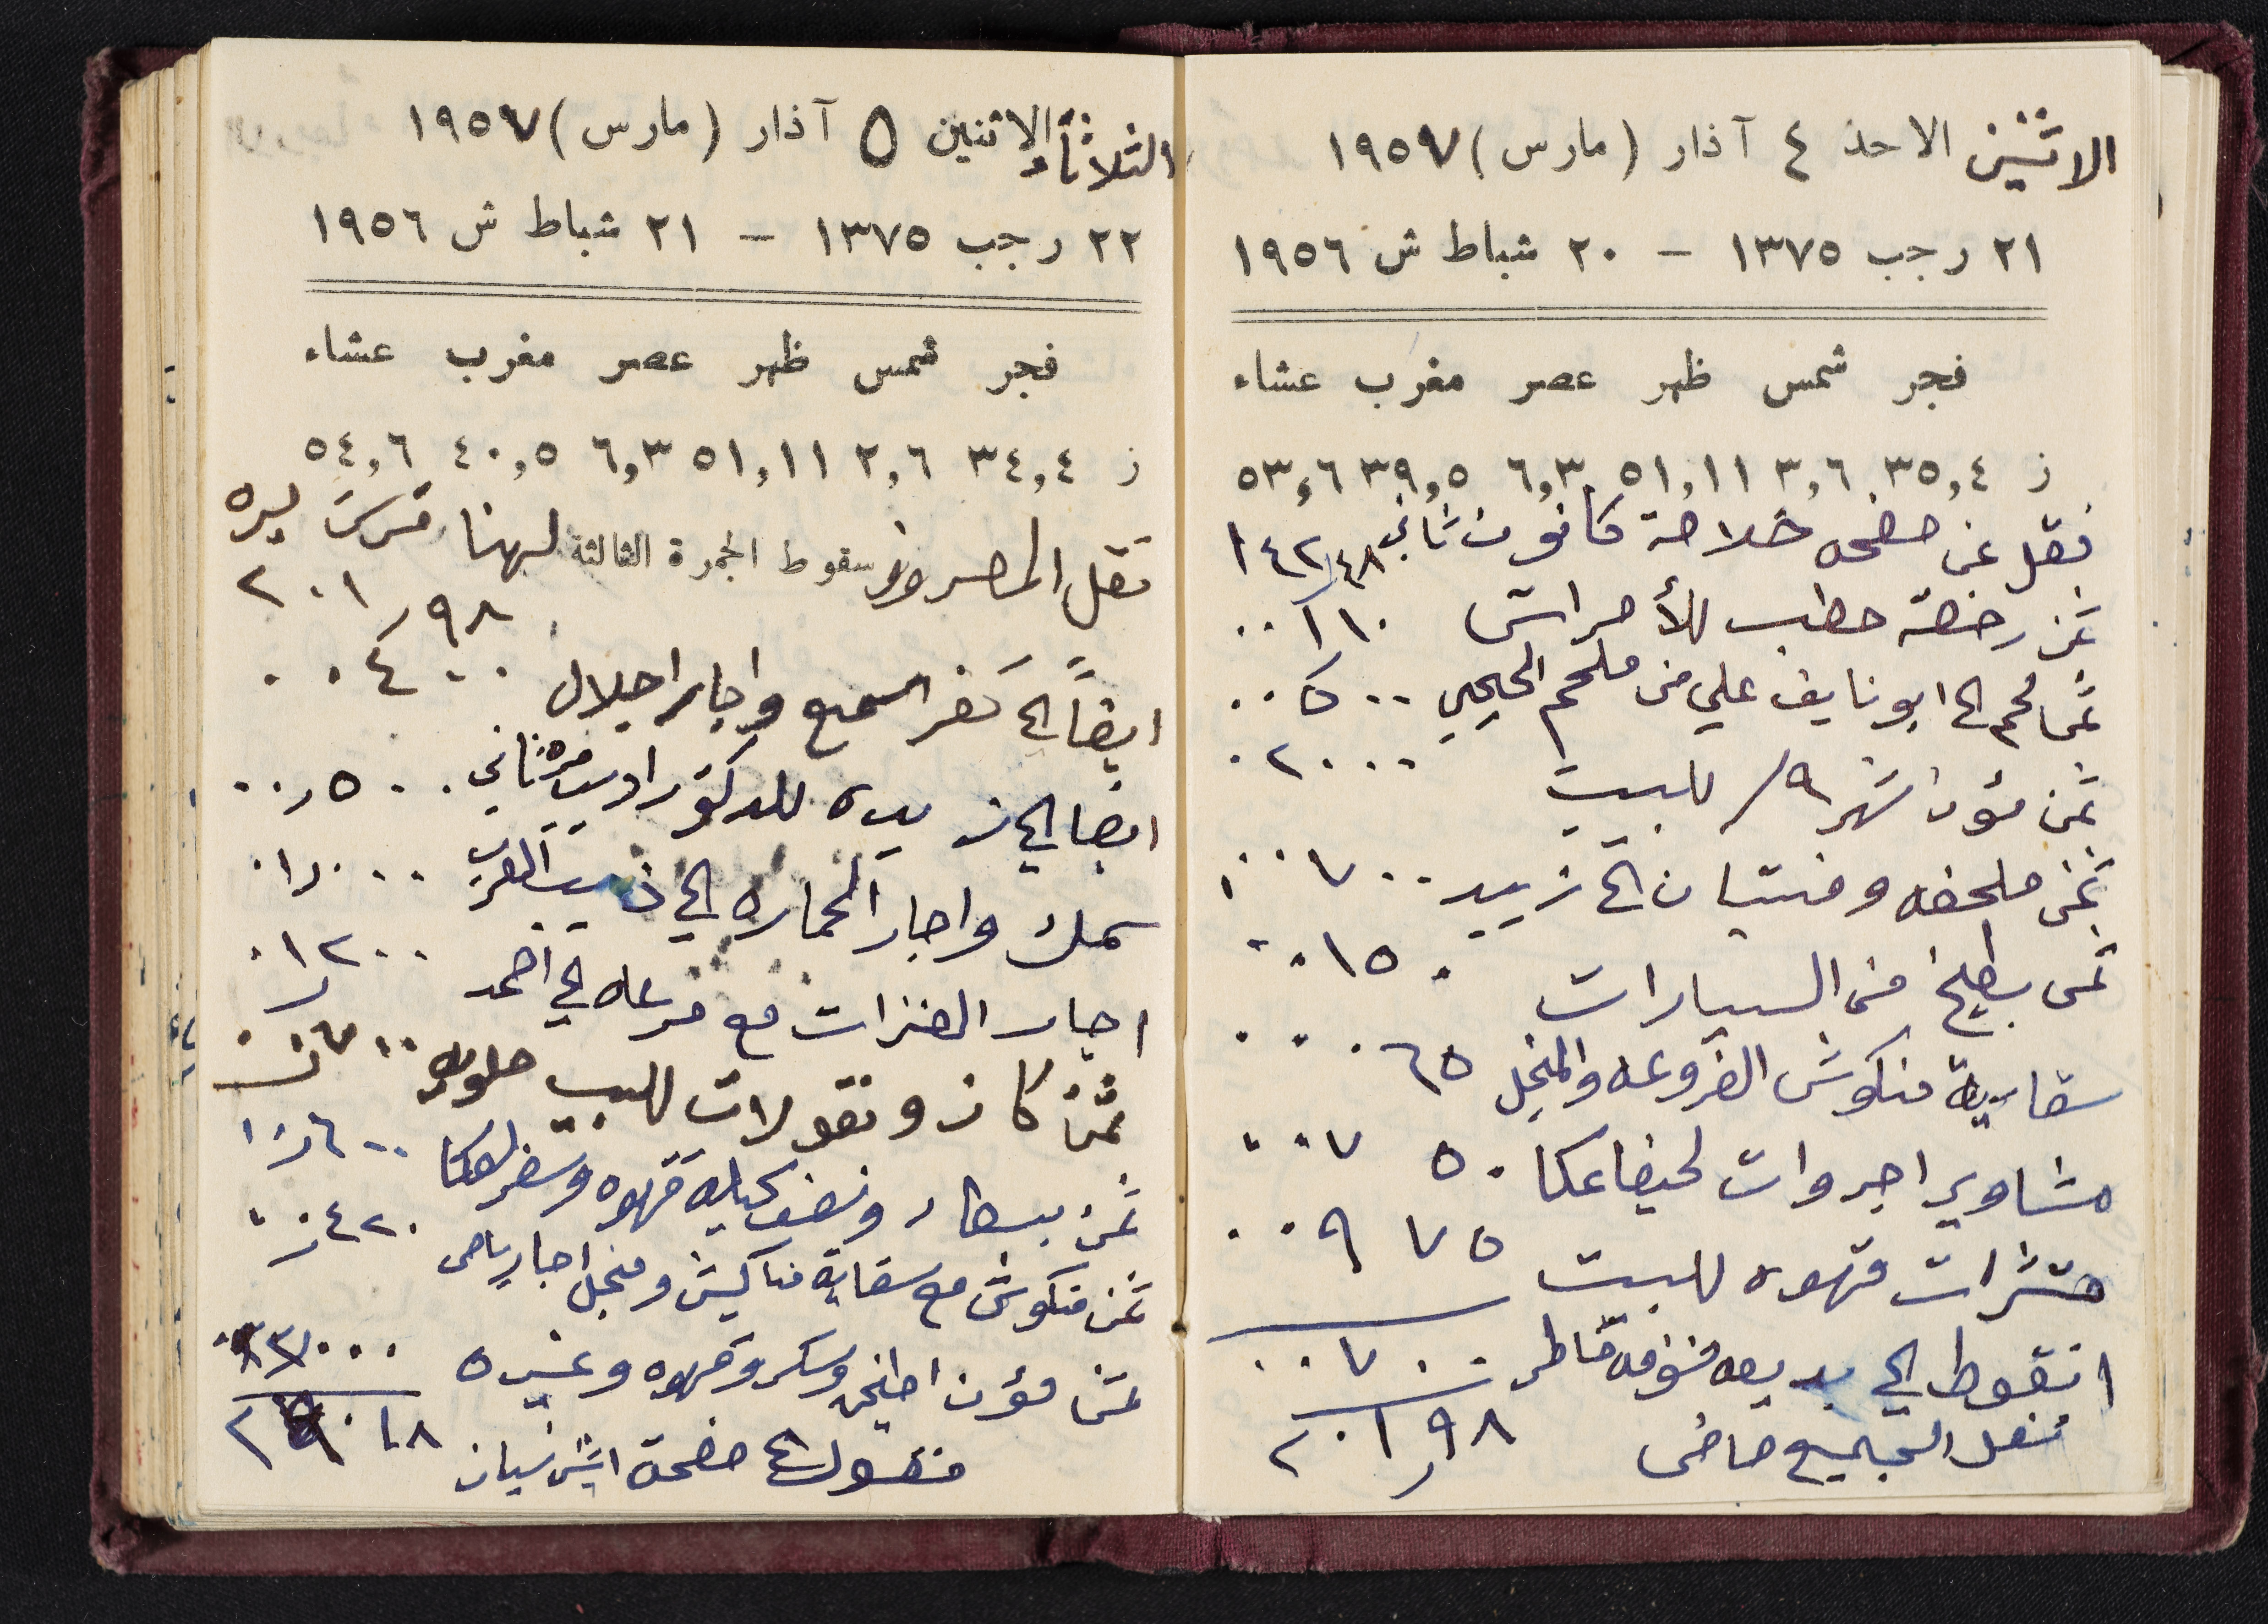 الاثنين الاحد ٤ آذار (مارس) ١٩٥٧
٢١ رجب ١٣٧٥ – ٢٠ شباط ش ١٩٥٦
فجر شمس ظهر عصر مغرب عشاء
ز ٣٥,٤ ٣,٦ ٥١,١١ ٦,٣ ٣٩,٥ ٥٣,٦
نقل عن صفحه خلاصة كانون ثاني ١٤٢٫٤٨
ثمن رخصة حطب للأحراش ٠٠١١٠
ثمن لحم الى ابو نايف علي من ملحم الحلبي ٠٠٥٠٠
ثمن مؤن شهر ٩/ للبيت ٠٢٠٠٠
ثمن ملحفه وفستان الى زبيد ٠٠٧٠٠
ثمن بطيخ من السيارات ٠٠١٥٠
سقاية منكوش الفروعه والمنجل ٠٠٠٦٥
مشاوير اجروات لحيفا عكا ٠٠٧٥٠
مشترات قهوه للبيت ٠٠٩٧٥
انقوط الى بديعه خاطر ٠٠٧٠٠
نقل الجميع ماضى ٢٠١٫٩٨
الثلاثاء الاثنين ٥ آذار (مارس) ١٩٥٧
٢٢ رجب ١٣٧٥ – ٢١ شباط ش ١٩٥٦
فجر شمس ظهر عصر مغرب عشاء
ز ٣٤,٤ ٢,٦ ٥١,١١ ٦,٣ ٤٠,٥ ٥٤,٦
نقل المصروف سقوط الجمرة الثالثة لهنا ليره
٢٠١٫٩٨
ايضاً الى كفر سميع واجار احلال ٠٠٤٠٠
ايضا الى زبيده للدكتور اديب مره ثاني ٠٠٫٥٠٠
سمك واجار الخماره الى ذيب ٠١٫٠٠٠
اجار العنزات مع مرعاه الى احمد ٠١٢٠٠
ثمن كاز ونقولات للبيت حلويه
ثمن بيطار ونصف كيله قهوه وسفر لعكا
ثمن منكوش مع سقاية مناكيش ومنجل اجار باص ٠٫٤٢٠
ثمن مؤن اطحين وسكر وقهوه وغيره
منقول الى صفحة نيسان